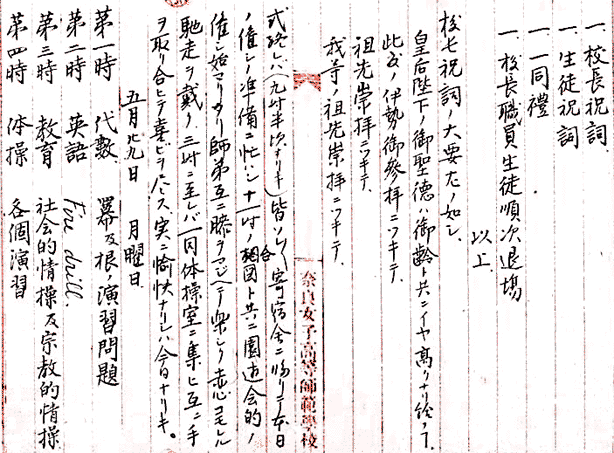 一、校長祝詞
一、生徒祝詞
一、一同禮
一、校長職員生徒順次退場
以上
校長祝詞ノ大要左ノ如シ、
皇后陛下ノ御聖徳ハ御齢ト共ニイヤ高リナリ給フ
此度ノ伊勢御參拝ニツキテ、
祖先崇拝ニツキテ、
我等ノ祖先崇拝ニツキテ、
奈良女子高等師範學校
式終レバ(九時半頃ナリキ)皆ソレ〱寄宿舎ニ帰リテ本日
ノ催シノ準備ニ忙シ、十一時ノ合圖ト共ニ園遊会的ノ
催シ始マリタリ師弟互ニ膝ヲマジヘテ楽シク
馳走ヲ戴ク、三時ニ至レバ一同体操室ニ集ヒ互ニ手
ヲ取リ合ヒテ喜ビヲ 実ニ愉快ナリシハ今日ナリキ。
五月廿九日 月曜日
第一時 代數 冪及根ノ演習問題
第二時 英語 Fire drill.
第三時 教育 社会的情操及宗教的情操
第四時 体操 各個演習